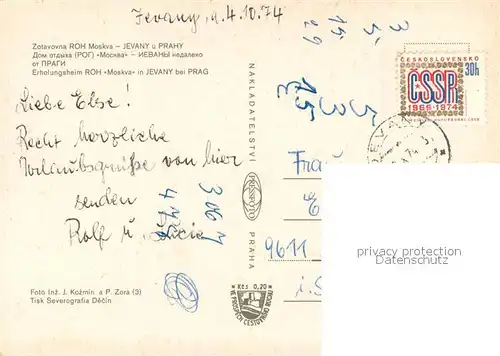 Jevany, 4.10.74
Zotavovna ROH Moskva – JEVANY u PRAHY
Дом отдыха (РОГ) «Москва» – ИЕВАНЫ недалеко
от ПРАГИ
Erholungsheim ROH «Moskva» in JEVANY bei PRAG
Liebe Else!
Recht herzliche
Urlaubsgrüße von hier
senden
Rolf u.
Foto Inž. J. Kožmín a P. Zora (3)
Tisk Severografia Děčín
NAKLADATELSTVÍ
PRESSFOTO
PRAHA
Kčs 0,20
VE PROSPĚCH CESTOVNÍHO RUCHU
3
5
15
29
15
5
3067
ČESKOSLOVENSKO
30h
ČSSR
1968-1974
JEVANY
Frau
E
9611
i. S
privacy protection
Datenschutz